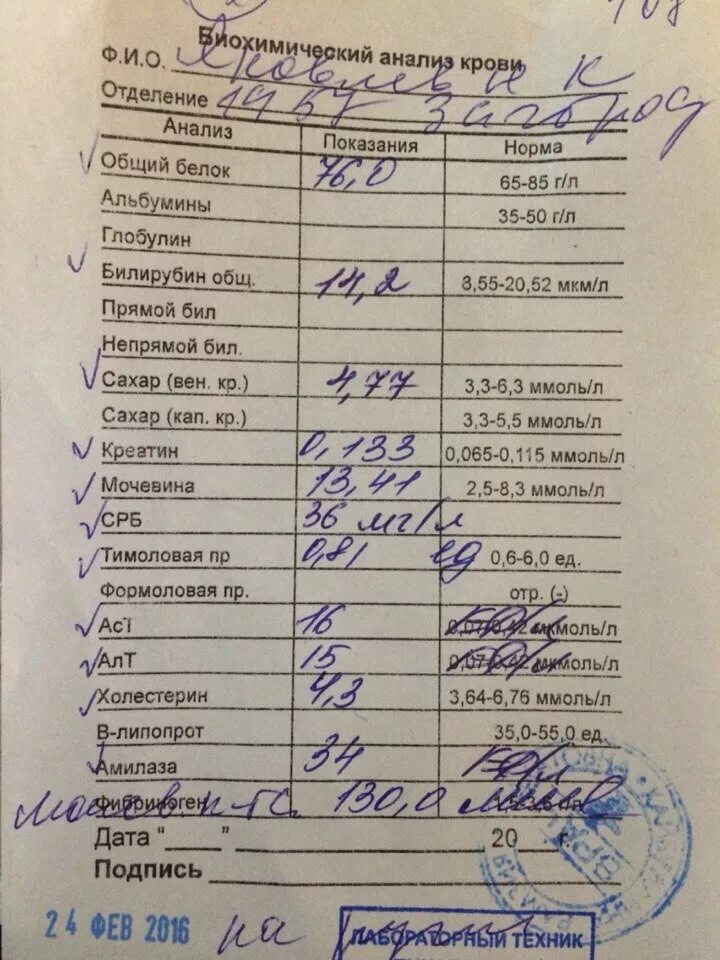 Биохимический анализ крови
Ф.И.О. Яковлев Н К
Отделение 1957 Загород
Анализ Показания Норма
Общий белок 76,0 65-85 г/л
Альбумины 35-50 г/л
Глобулин
Билирубин общ. 14,2 3,55-20,52 мкм/л
Прямой бил
Непрямой бил.
Сахар (вен. кр.) 4,77 3,3-6,3 ммоль/л
Сахар (кап. кр.) 3,3-5,5 ммоль/л
Креатин 0,133 0,065-0,115 ммоль/л
Мочевина 13,41 2,5-8,3 ммоль/л
СРБ 36 мг/л
Тимоловая пр 0,81 ед 0,6-6,0 ед.
Формоловая пр. отр. (-)
АсТ 16 0,07-0,42 мкмоль/л
АлТ 15 0,07-0,42 мкмоль/л
Холестерин 4,3 3,64-6,76 ммоль/л
В-липопрот 35,0-55,0 ед.
Амилаза 34
Фибриноген 130,0
Дата “ ” 20 г.
Подпись
24 ФЕВ 2016 на
ЛАБОРАТОРНЫЙ ТЕХНИК